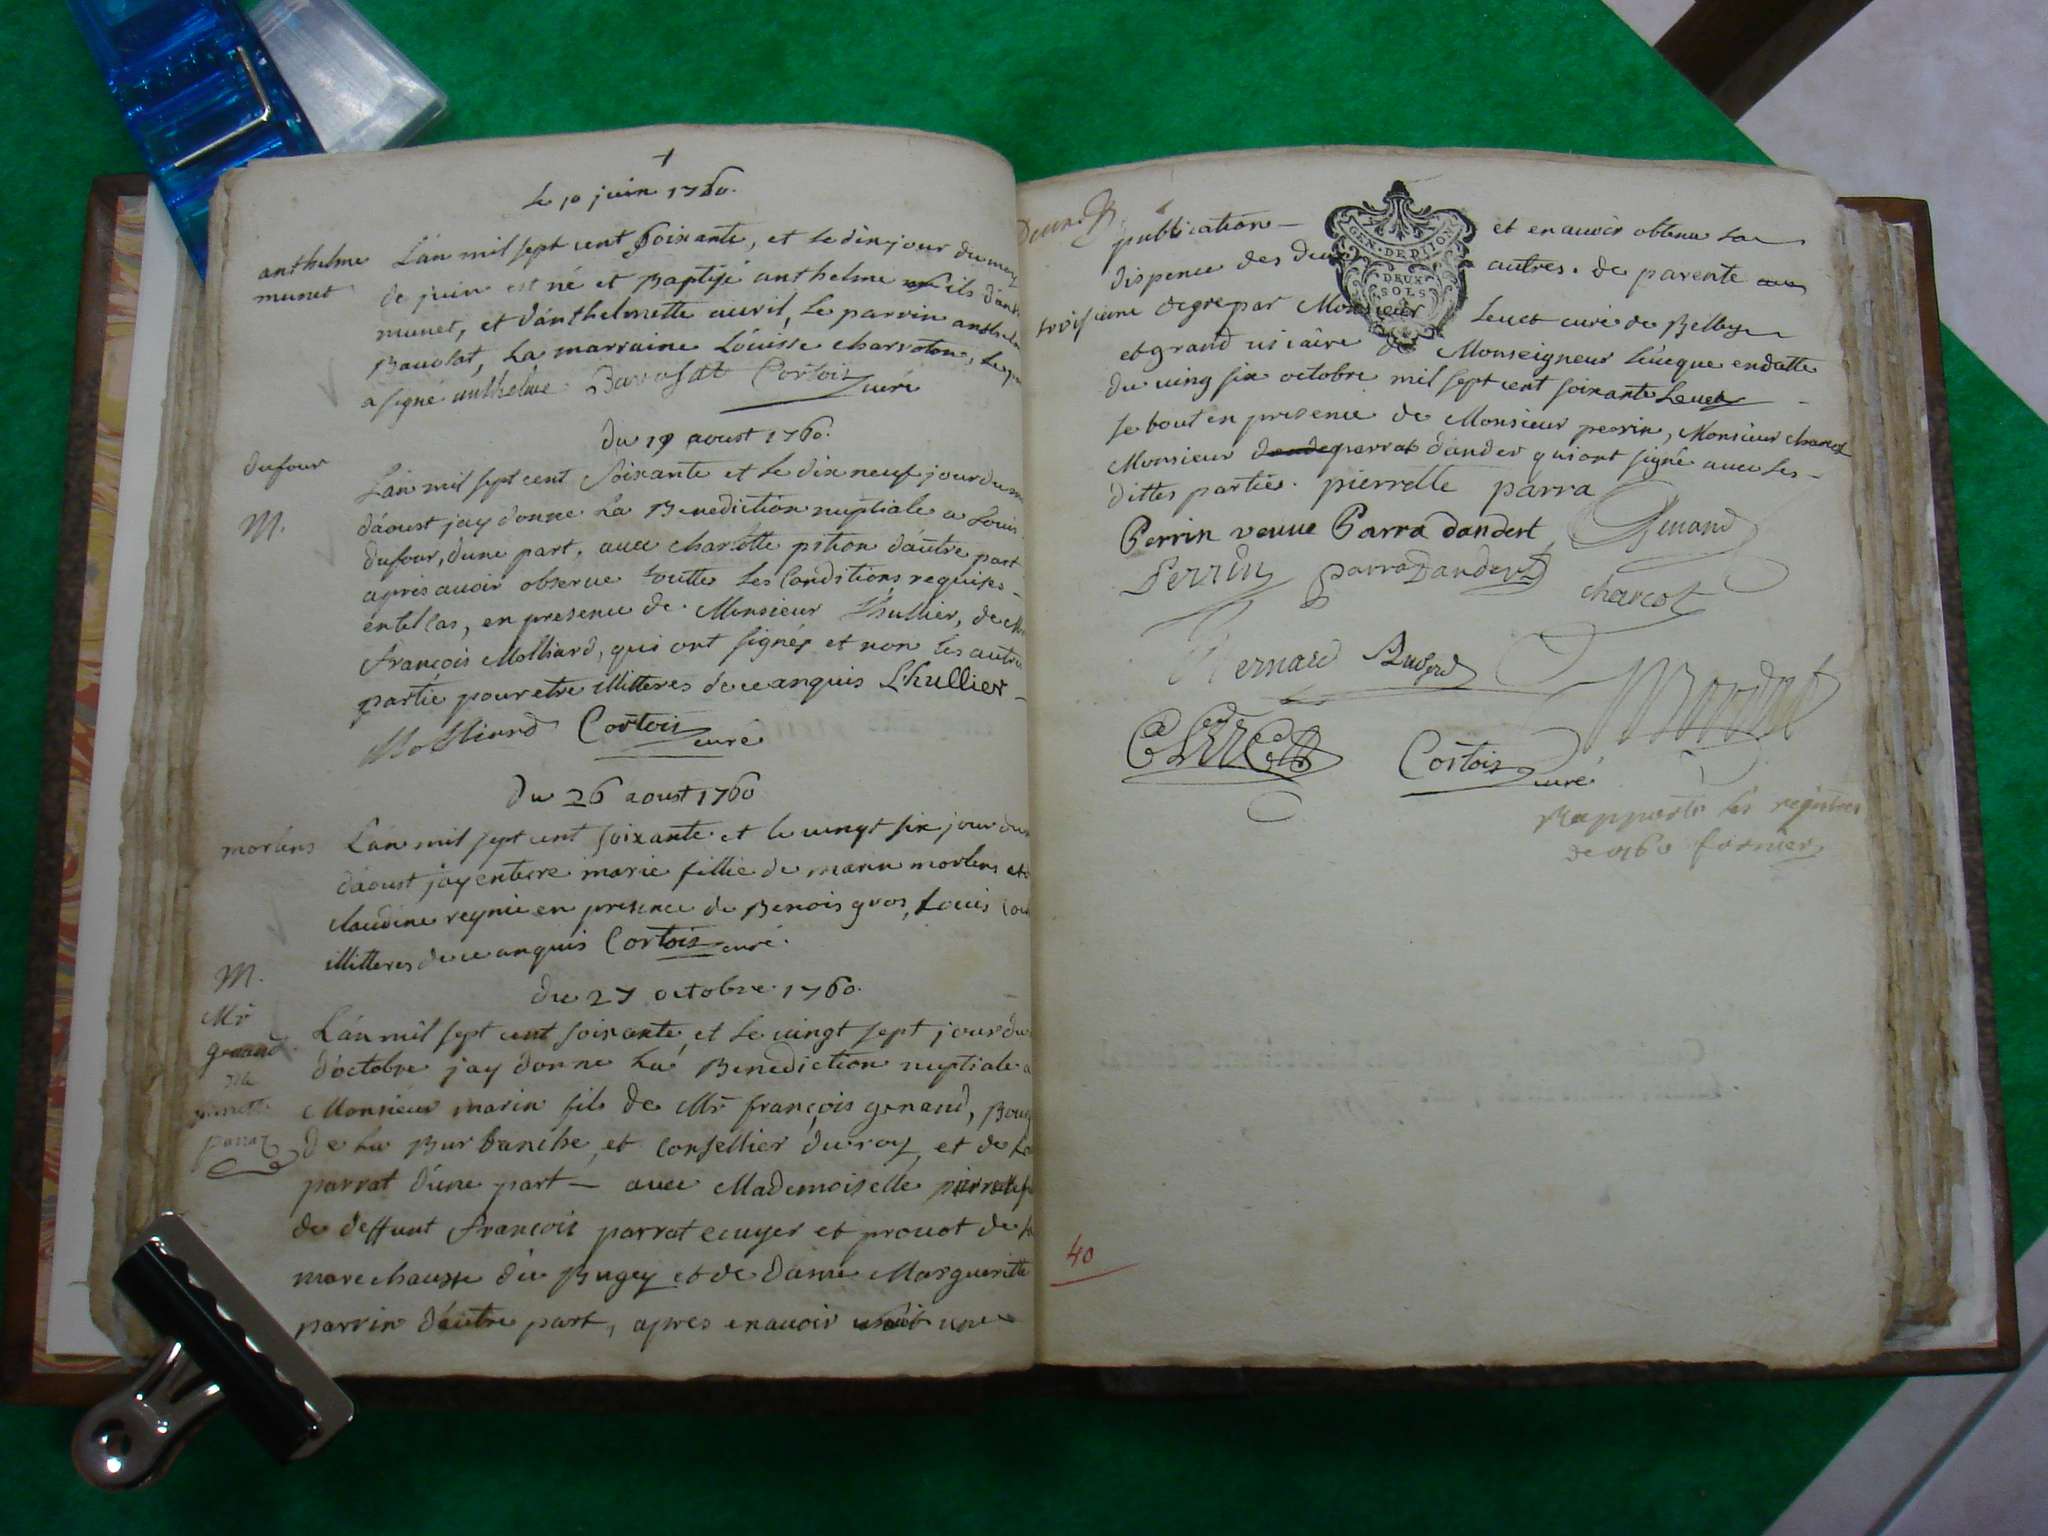 le 10 juin 1760.
anthelme
munet
L'an mil sept cent soixante, et le dix jour du moy
de juin est né et Baptisé anthelme fils d'anth
munet, et d'anthelmette auvril, le parrin anthelm
Bavolat, la marraine Louisse charroton, le
a signé anthelme Cortois curé
du 19 aoust 1760.
dufour
M.
L'an mil sept cent soixante et le dix neuf jour du m
d'aoust jay donne la Benediction nuptiale a Louis
dufour, d'une part, avec charlotte pition d'autre part
apres avoir observe toutte les Conditions requises
en tel cas, en presence de Monsieur Lhullier, de
françois Molliard, qui ont signés et non les autre
partie pour etre illitteres de ce anquis Lhullier
Molliard Cortois curé
du 26 aoust 1760
morlens
L'an mil sept cent soixante et le vingt six jour du
d'aoust jay enterre marie fillie de marin morlens et
claudine reynie en presence de Benois gros, Louis
illitteres de ce anquis Cortois curé.
du 27 octobre 1760.
M.
Mr
genand
parraz
L'an mil sept cent soixante et le vingt sept jour du
d'octobre jay donne la Benediction nuptiale a
Monsieur marin fils de Mr françois genand, Bour
de la Burbanche, et Consellier du roy, et de
parrat d'une part — avec Mademoiselle pierrette
de deffunt françois parrat ecuyer et prevot de la
marechausse du Bugey et de dame Margueritte
parrin d'autre part, apres en avoir une
publication — et en avoir obtenu la
dispence des deux autres. de parente au
troisieme degre par Monsieur Levet curé de Belley
et grand vicaire de Monseigneur l'eveque en datte
du ving six octobre mil sept cent soixante Levet
le tout en presence de Monsieur perrin, Monsieur charcot
Monsieur parrat d'ander qui ont signé avec les
dittes parties. pierrette parra
Perrin veuve Parra dandert Genand
Perrin parra Dandert charcot
Bernard
Cortois curé
GEN. DE DIJON
DEUX
SOLS
Rapporté les registres
de 1760
40